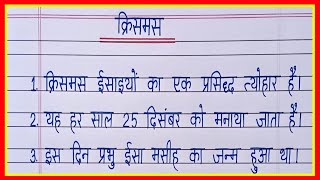 क्रिसमस
1. क्रिसमस ईसाइयों का एक प्रसिद्ध त्योहार है।
2. यह हर साल 25 दिसंबर को मनाया जाता है।
3. इस दिन प्रभु ईसा मसीह का जन्म हुआ था।